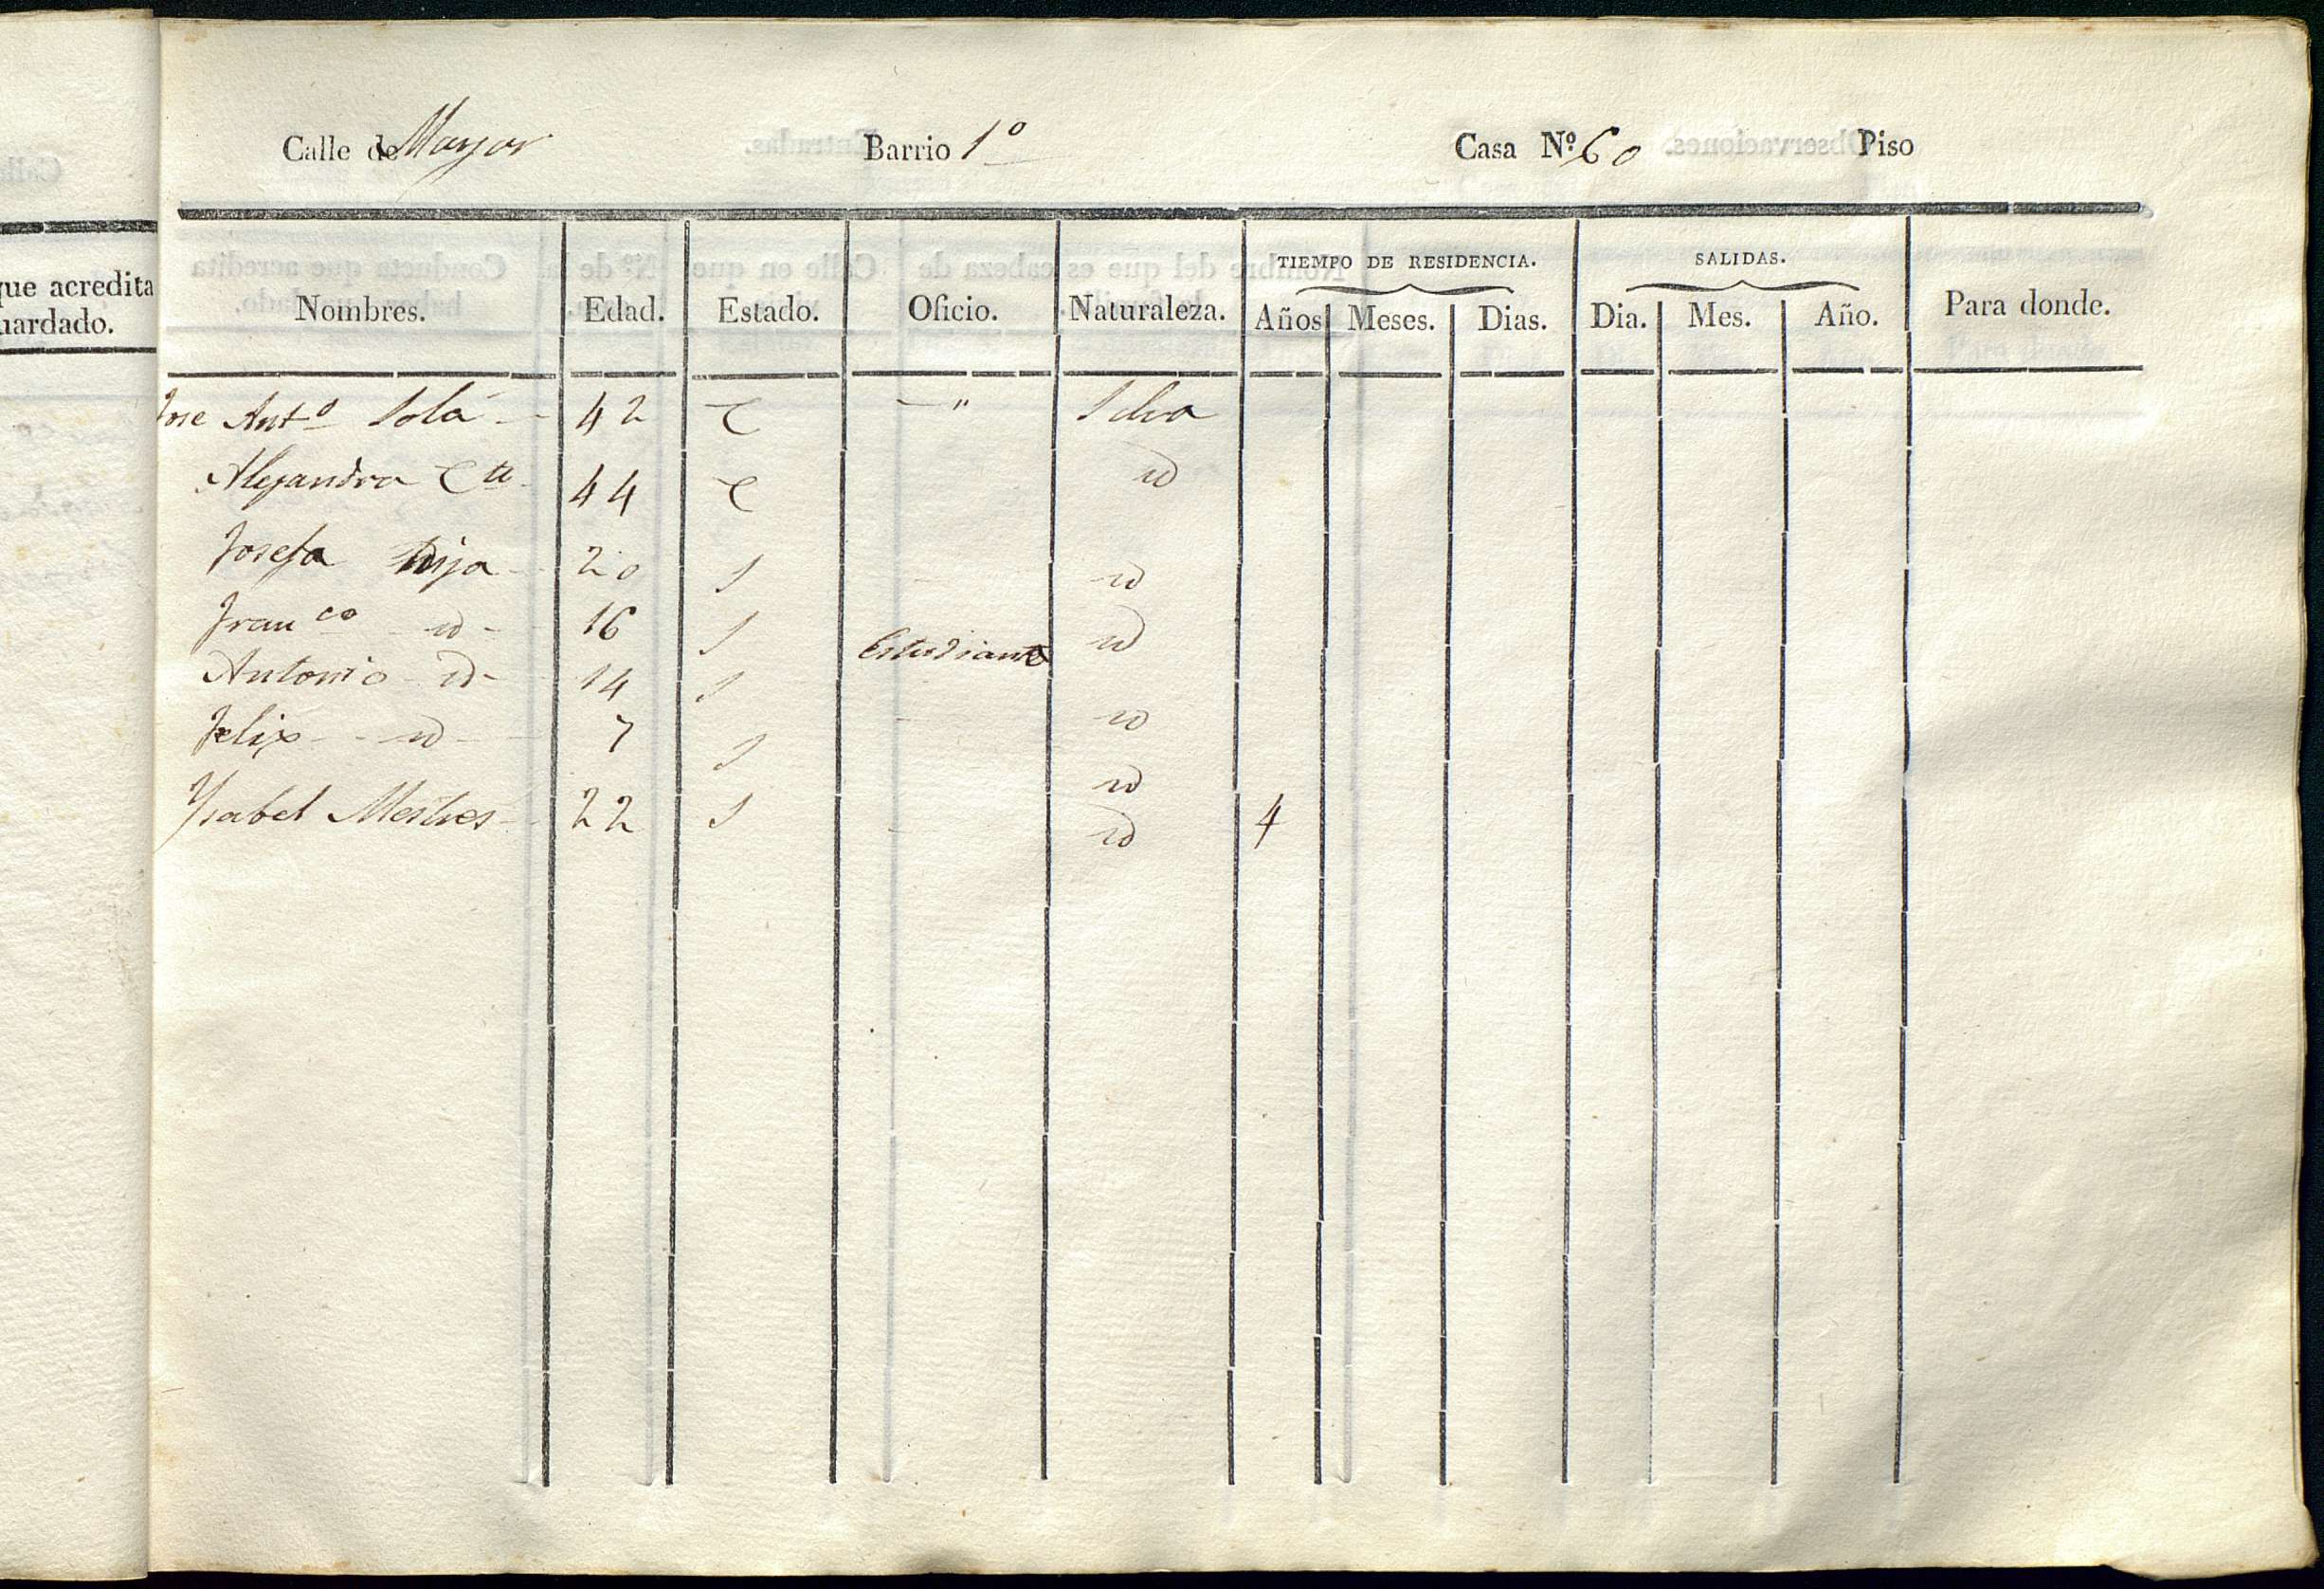 que acredita
uardado.
Calle de Mayor Barrio 1º Casa Nº 60 Piso
TIEMPO DE RESIDENCIA. SALIDAS.
Nombres. Edad. Estado. Oficio. Naturaleza. Años Meses. Dias. Dia. Mes. Año. Para donde.
Jose Antº Solá 42 C " Selva
Alejandra 44 C id
Josefa hija 20 S id
Franco id 16 S Estudiante id
Antonio id 14 S id
Felix id 7 S id
Ysabel Mestres 22 S id 4